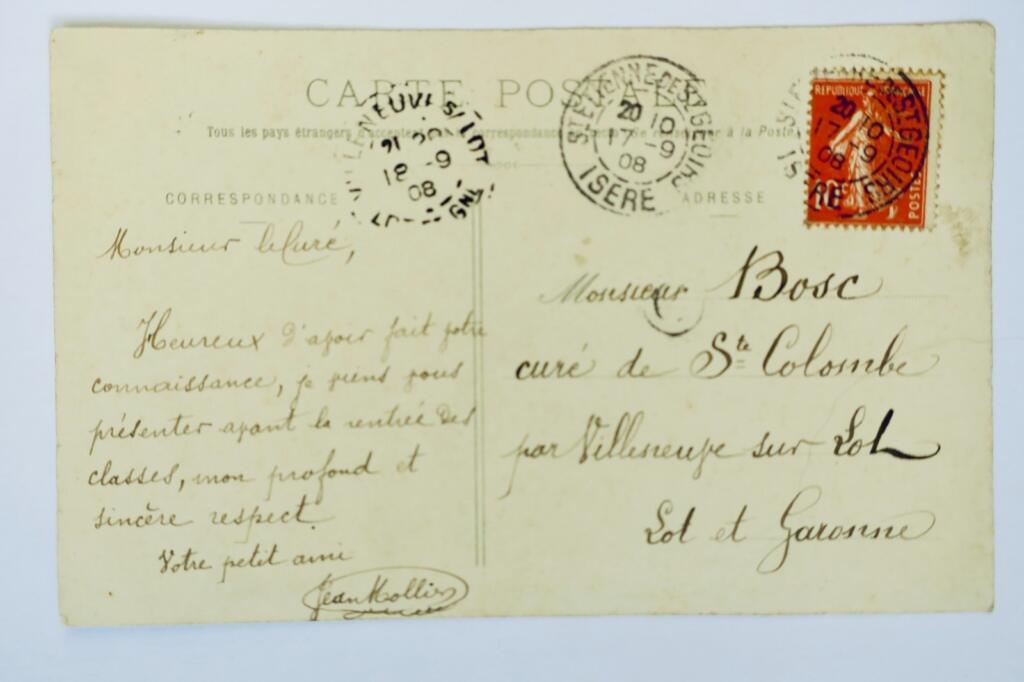 CARTE POSTALE
Tous les pays étrangers n'acceptent la correspondance à la Poste
CORRESPONDANCE
ADRESSE
VILLENEUVE S/ LOT
21
18 -9
08
ST ETIENNE DE ST GEOIRS
20 10
17 -9
08
ISERE
ST GEOIRS
20 10
17 -9
08
ISERE
REPUBLIQUE FRANÇAISE
10 c
POSTES
Monsieur le Curé,
Heureux d'avoir fait votre
connaissance, je viens vous
présenter avant la rentrée des
classes, mon profond et
sincère respect.
Votre petit ami
Jean Mollier
Monsieur Bosc
curé de Ste Colombe
par Villeneuve sur Lot
Lot et Garonne